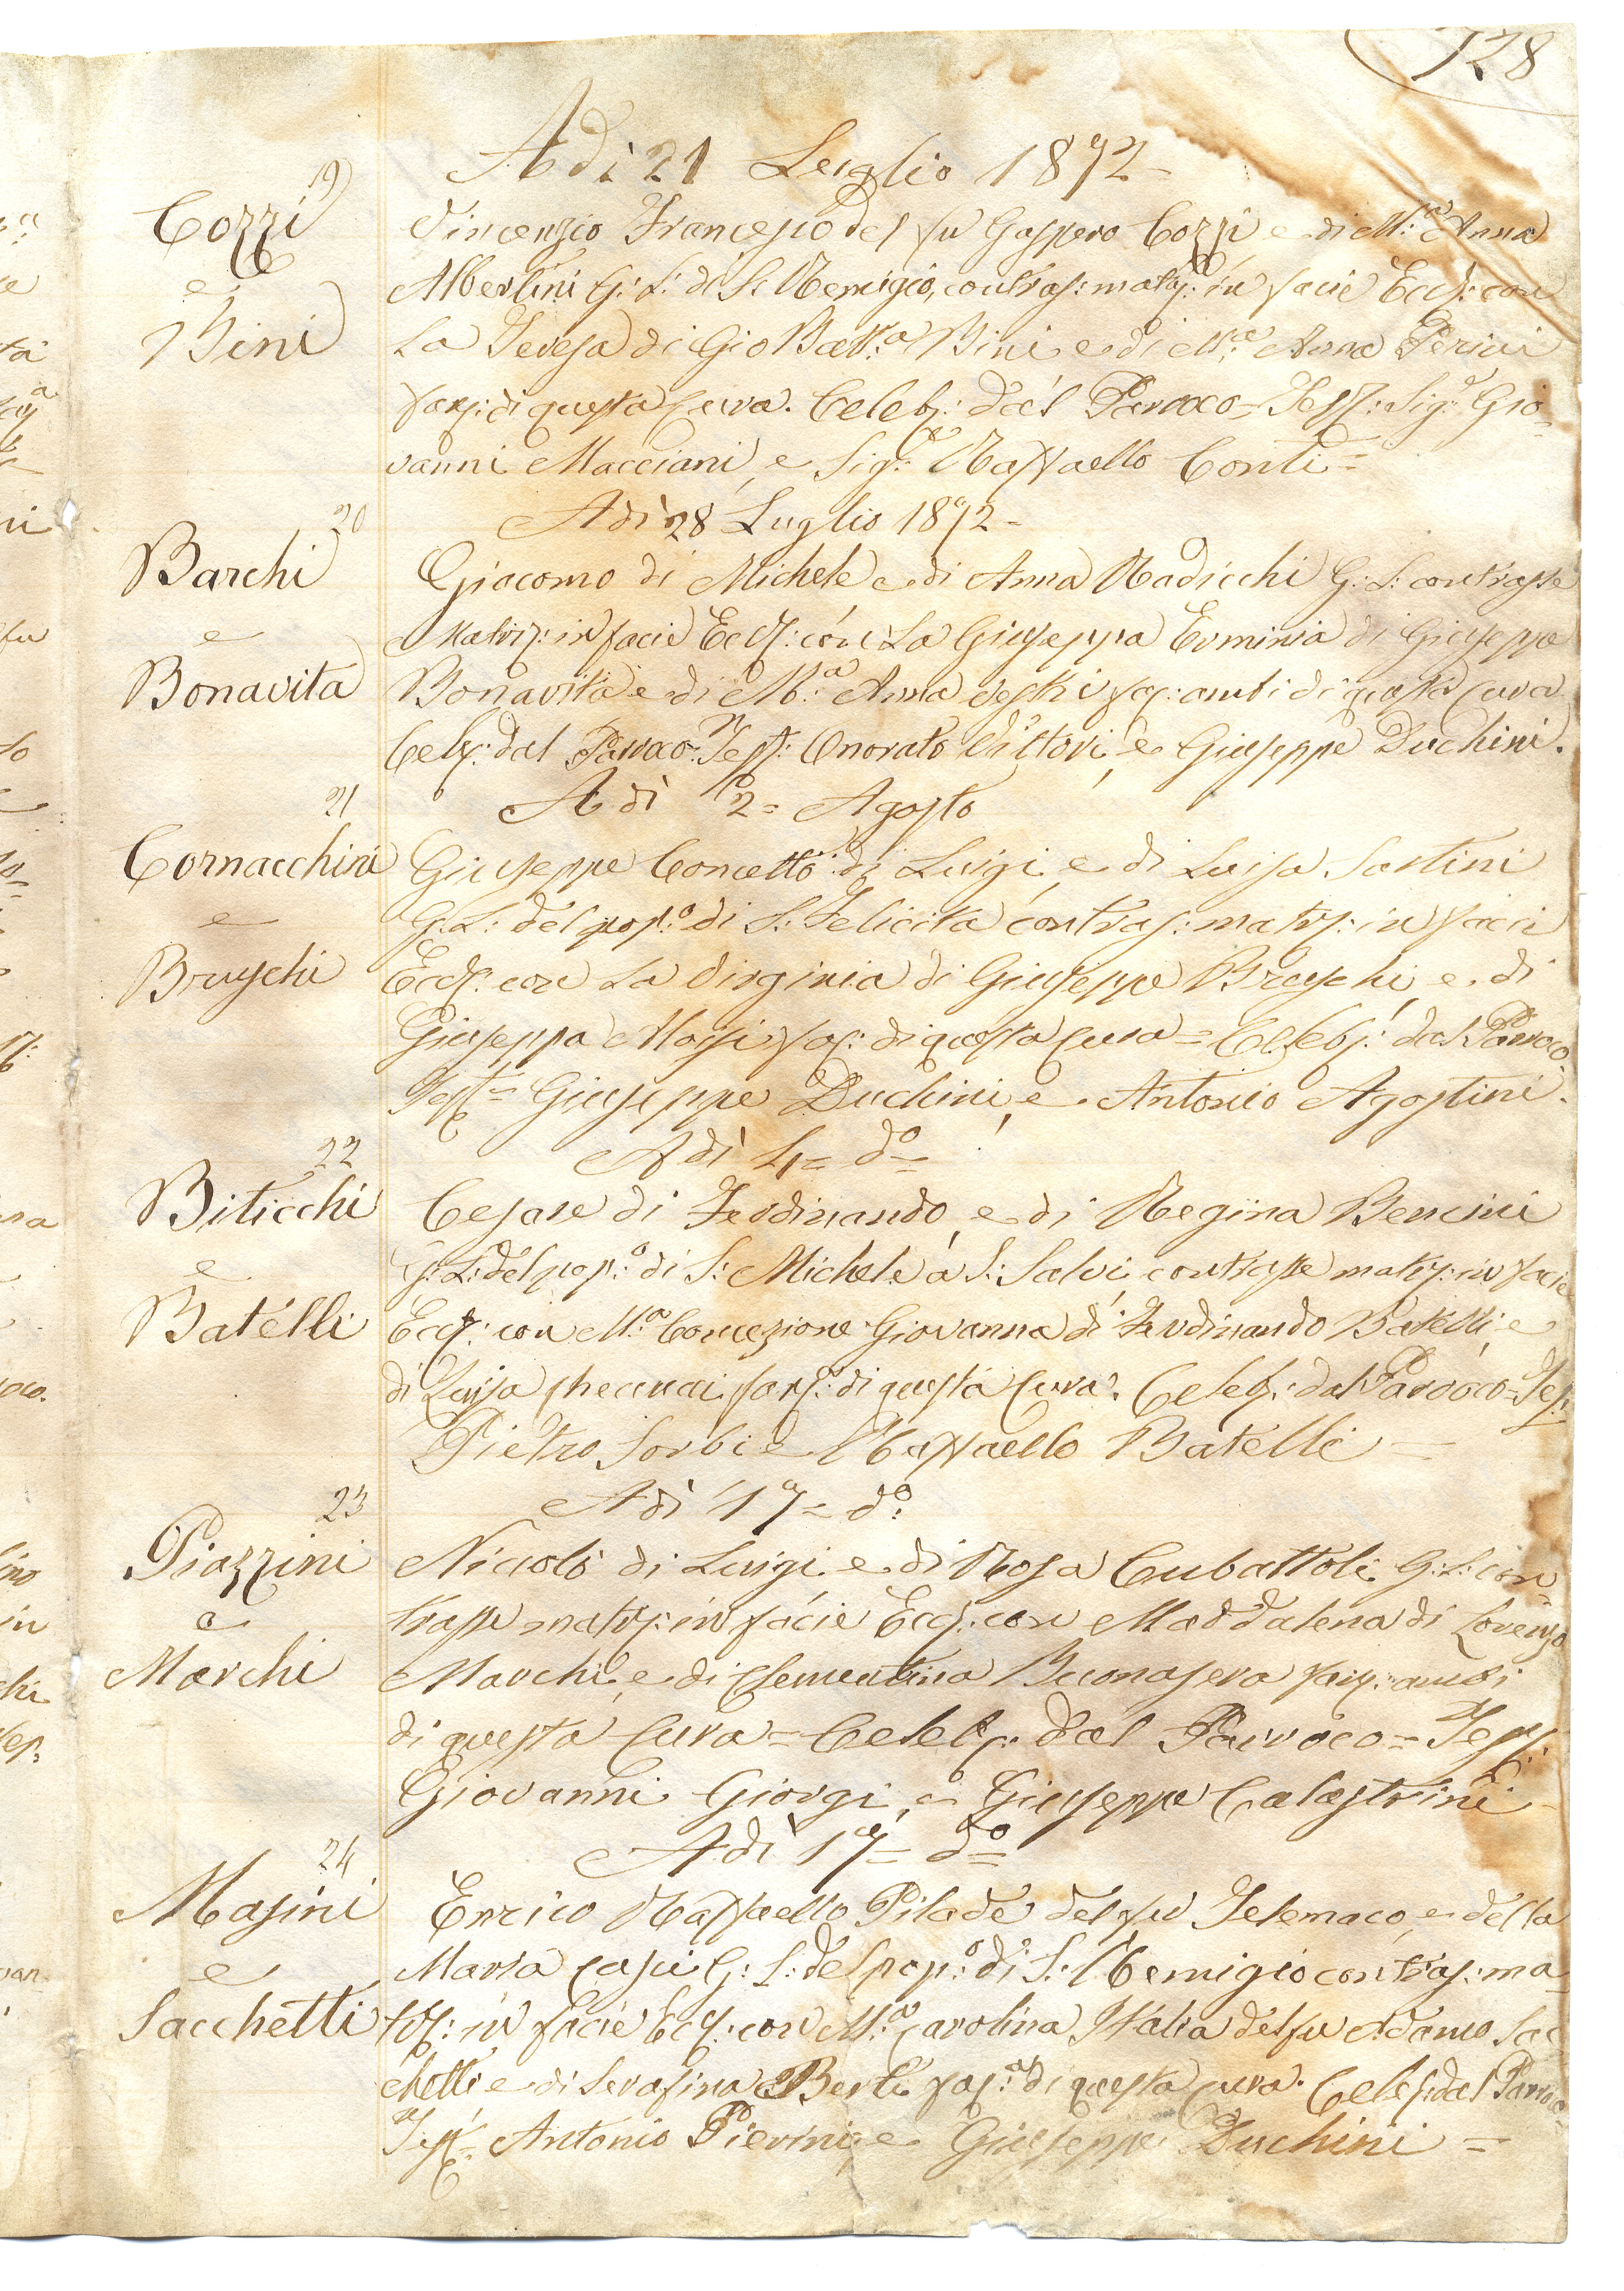 128
Adì 21 Luglio 1872 -
19
Cozzi
e
Bini
Vincenzio Francesco del fu Gaspero Cozzi e di M.ª Anna
Albertini G: S: di S. Remigio, contras: matrj: in facie Eccl: con
La Teresa di Gio Batt.ª Bini e di M.ª Anna Perini
fanz: di questa Cura. Celebr: dal Parroco = Test: Sig.r Gio=
vanni Macciani, e Sig.r Raffaello Conti =
Adì 28 Luglio 1872 -
20
Barchi
e
Bonavita
Giacomo di Michele e di Anna Radicchi G: S: contrasse
Matrij: in facie Eccl: con La Giuseppa Erminia di Giuseppe
Bonavita e di M.ª Anna Vestri fan: ambi di questa Cura
Celeb: dal Parroco. Test: Onorato Vittori, e Giuseppe Duchini.
Adì 2 = Agosto
21
Cornacchini
e
Bruschi
Giuseppe Concetto di Luigi, e di Luisa Santini
G: S: del pop:º di S: Felicita contras: matrj: in facie
Eccl: con La Virginia di Giuseppe Bruschi, e di
Giuseppa Massi fan: di questa Cura = Celebr: dal Parroco
Test = Giuseppe Duchini, e Antonio Agostini.
Adì 4 = dº =
22
Biticchi
e
Batelli
Cesare di Ferdinando, e di Regina Bencini
G: S: del pop:º di S: Michele a S: Salvi, contrasse matrj: in facie
Eccl: con M.ª Concezione Giovanna di Ferdinando Batelli, e
di Luisa Checcucci fanz: di questa Cura. Celeb: dal Parroco = Tes:
Pietro Sorbi e Raffaello Batelli —
Adì 17 = dº:
23
Piazzini
e
Marchi
Niccolò di Luigi e di Rosa Cubattoli G: S: con
trasse matrj: in facie Eccl: con Maddalena di Lorenzo
Marchi, e di Clementina Buonasera fanz: ambi
di questa Cura = Celeb: dal Parroco = Test:
Giovanni Giorgi, e Giuseppe Calastrini -
Adì 17 = dº =
24
Masini
e
Sacchetti
Enrico Raffaello Pilade del fu Telemaco, e della
Maria Casci G: S: del pop:º di S: Remigio contras: ma
trj: in facie Eccl: con M.ª Carolina Italia del fu Adamo Sac
chetti e di Serafina Berti fan:ª di questa Cura. Celeb: dal Parroco
Test = Antonio Pierini, e Giuseppe Duchini =